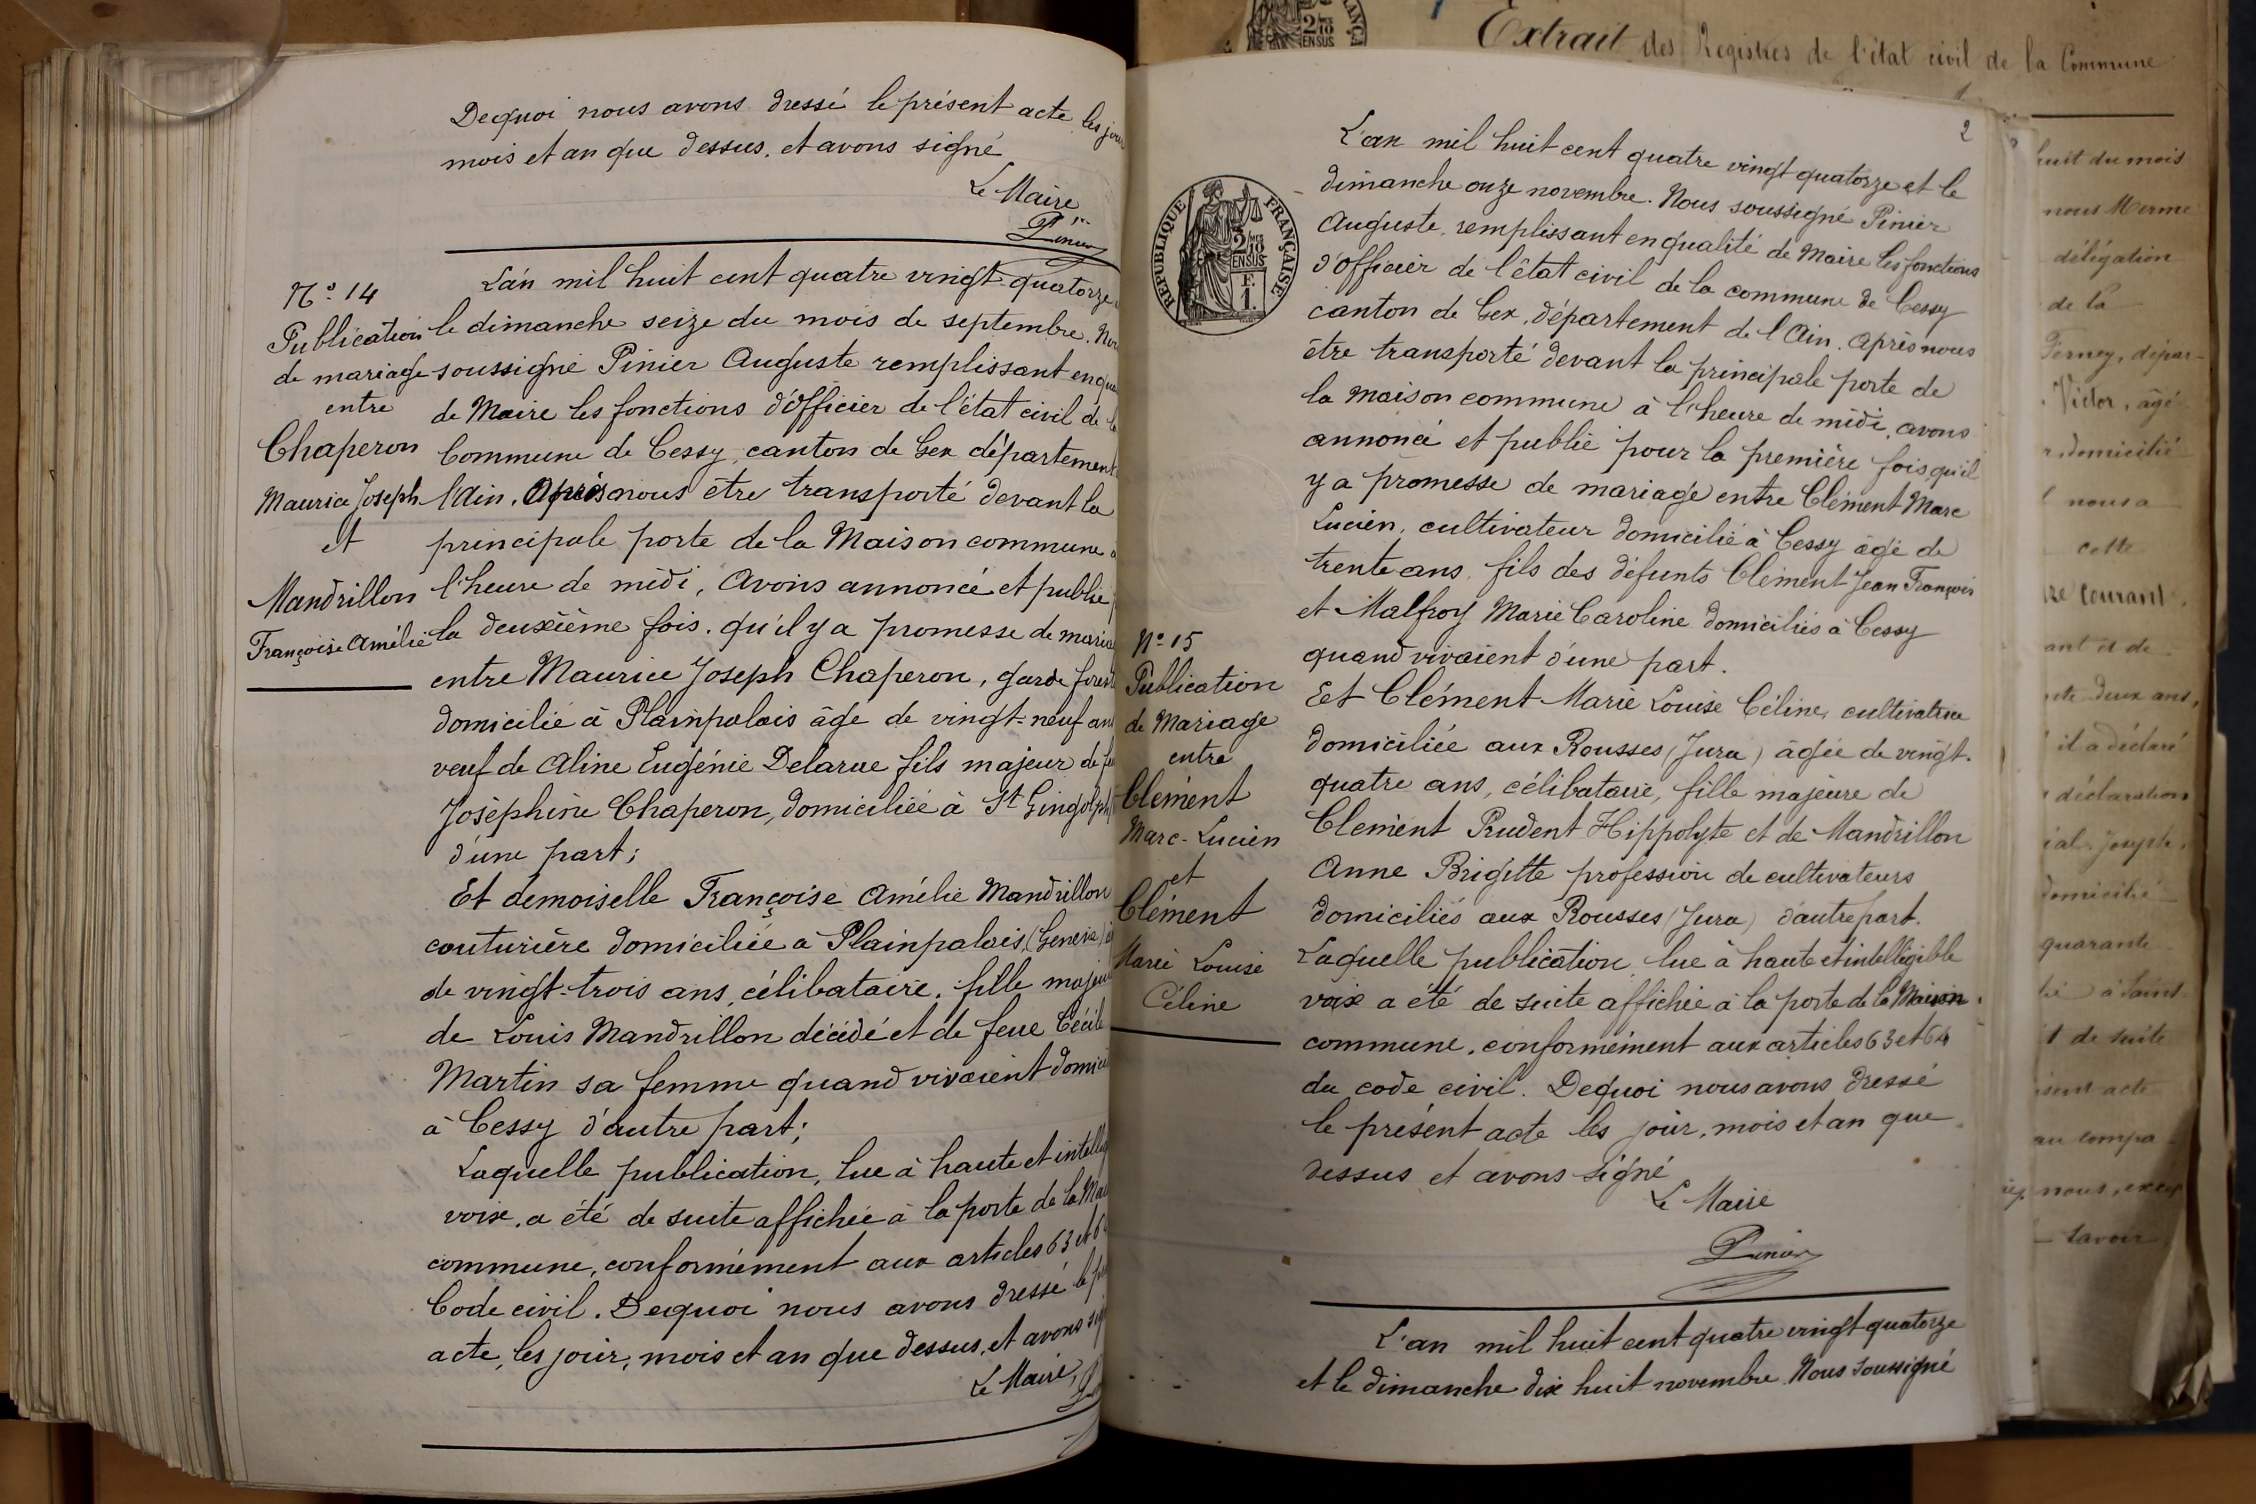 Dequoi nous avons dressé le présent acte les jour
mois et an que dessus. et avons signé
Le Maire
Pinier
N° 14
Publication
de mariage
entre
Chaperon
Maurice Joseph
et
Mandrillon
Françoise Amélie
L'an mil huit cent quatre vingt quatorze
le dimanche seize du mois de septembre. Nou
soussigné Pinier Auguste remplissant enqua
de Maire les fonctions d'officier de l'état civil de la
Commune de Cessy, canton de Gex département
l'Ain. Après nous être transporté devant la
principale porte de la Maison commune à
l'heure de midi, Avons annoncé et publié p
la deuxième fois. qu'il y a promesse de maria
entre Maurice Joseph Chaperon, garde forest
domicilié à Plainpalais âgé de vingt-neuf an
veuf de Aline Eugénie Delarue fils majeur de fe
Joséphine Chaperon, domiciliée à St Gingolph
d'une part;
Et demoiselle Françoise Amélie Mandrillon
couturière domiciliée à Plainpalais (Genève)
de vingt-trois ans, célibataire, fille majeu
de Louis Mandrillon décédé et de feue Cécile
Martin sa femme quand vivaient domici
à Cessy d'autre part;
Laquelle publication, lue à haute et intellig
voix, a été de suite affichée à la porte de la Mai
commune, conformément aux articles 63 et 6
Code civil. Dequoi nous avons dressé le pré
acte, les jour, mois et an que dessus, et avons sig
Le Maire,
Extrait des Registres de l'état civil de la Commune
2/10 EN SUS
2
RÉPUBLIQUE FRANÇAISE
2/10 EN SUS
F. 1.
L'an mil huit cent quatre vingt quatorze et le
dimanche onze novembre. Nous soussigné Pinier
Auguste, remplissant en qualité de Maire les fonctions
d'officier de l'état civil de la commune de Cessy
canton de Gex, département de l'Ain. Après nous
être transporté devant la principale porte de
la maison commune à l'heure de midi, avons
annoncé et publié pour la première fois, qu'il
y a promesse de mariage entre Clément Marc
Lucien, cultivateur domicilié à Cessy âgé de
trente ans, fils des défunts Clément Jean François
et Malfroy Marie Caroline domiciliés à Cessy
quand vivaient d'une part.
Eet Clément Marie Louise Céline, cultivatrice
domiciliée aux Rousses (Jura) âgée de vingt-
quatre ans, célibataire, fille majeure de
Clément Prudent Hippolyte et de Mandrillon
Anne Brigitte profession de cultivateurs
domiciliés aux Rousses (Jura) d'autre part.
Laquelle publication lue à haute et intelligible
voix a été de suite affichée à la porte de la Maison
commune, conformément aux articles 63 et 64
du code civil. Dequoi nous avons dressé
le présent acte les jour, mois et an que
dessus et avons signé
Le Maire
Pinier
N° 15
Publication
de Mariage
entre
Clément
Marc-Lucien
et
Clément
Marie Louise
Céline
L'an mil huit cent quatre vingt quatorze
et le dimanche dix huit novembre Nous soussigné
huit du mois
nous Merme
délégation
de la
Ferney, dépar-
Victor, âgé
domicilié
nous a
cette
courant.
ant et de
deux ans,
il a déclaré
déclaration
Joseph,
domicilié
quarante
à Saint
de suite
acte
au compa
nous, excep
savoir